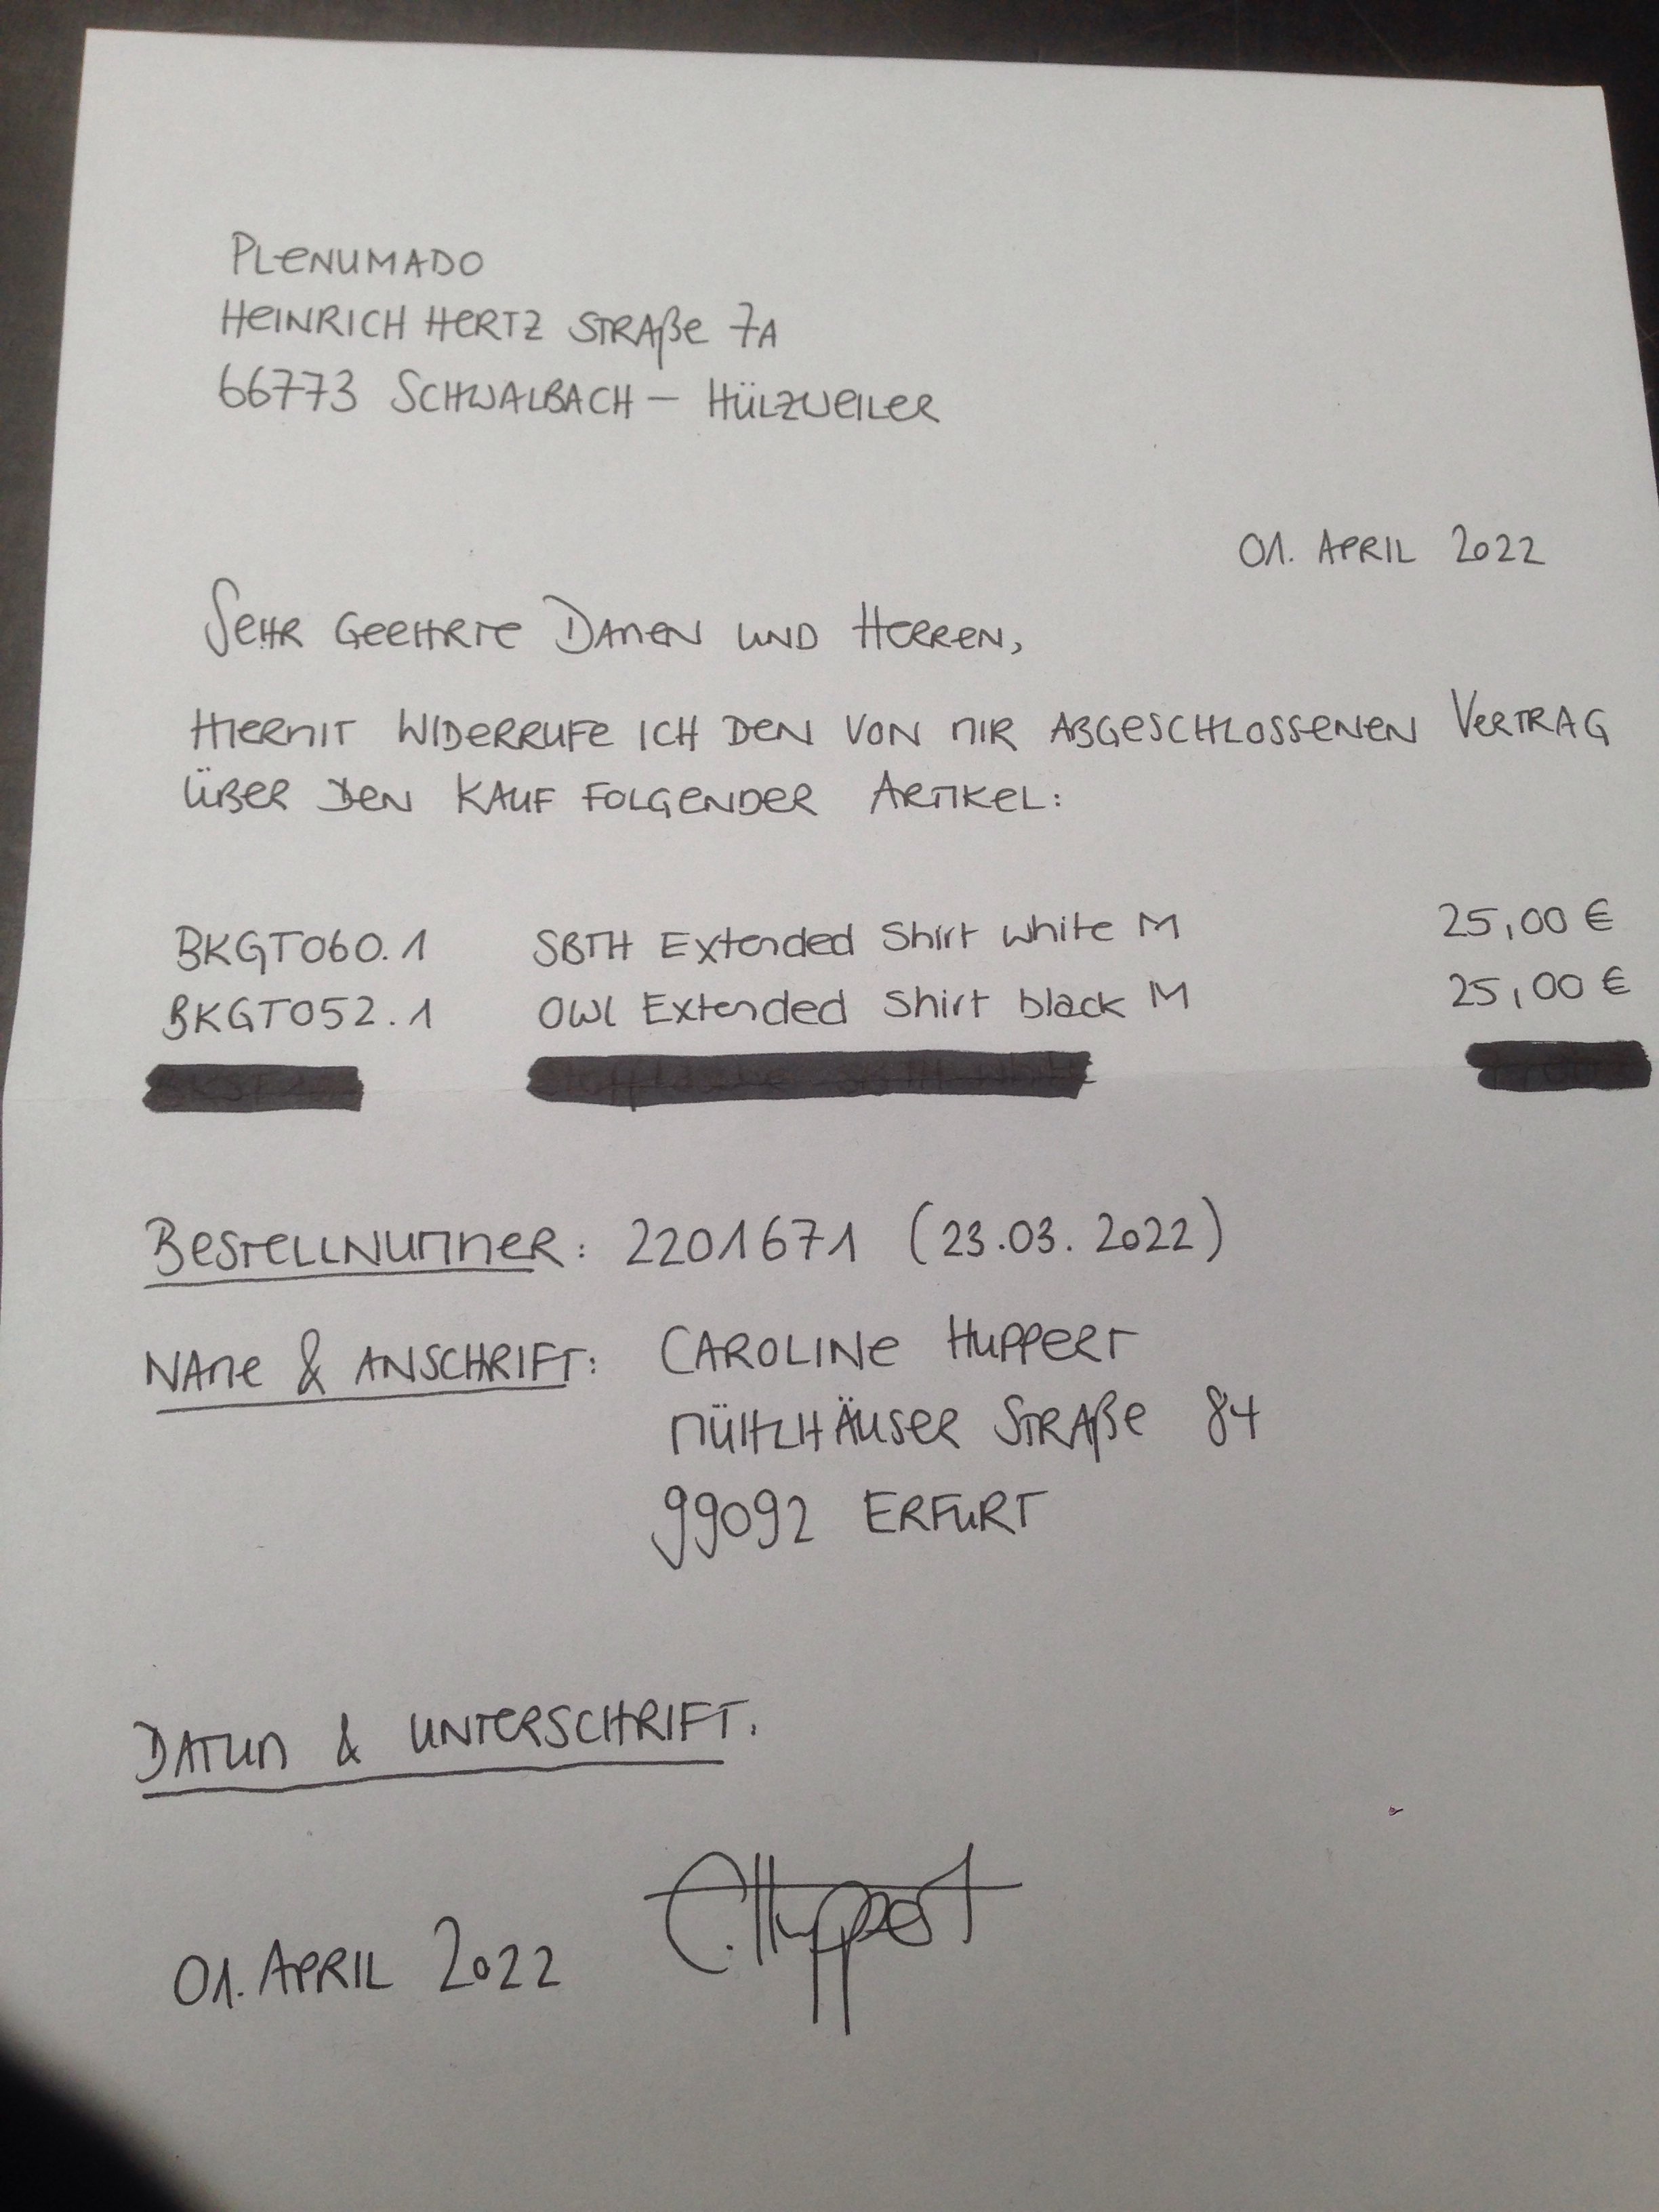 PLENUMADO
HEINRICH HERTZ STRAßE 7A
66773 SCHWALBACH – HÜLZWEILER
01. APRIL 2022
SEHR GEEHRTE DAMEN UND HERREN,
HIERMIT WIDERRUFE ICH DEN VON MIR ABGESCHLOSSENEN VERTRAG
ÜBER DEN KAUF FOLGENDER ARTIKEL:
BKGT060.1 SBTH Extended Shirt white M 25,00 €
BKGT052.1 OWL Extended Shirt black M 25,00 €
BESTELLNUMMER: 2201671 (23.03.2022)
NAME & ANSCHRIFT: CAROLINE HUPPERT
MÜHLHÄUSER STRAßE 84
99092 ERFURT
DATUM & UNTERSCHRIFT:
01. APRIL 2022 C. Huppert